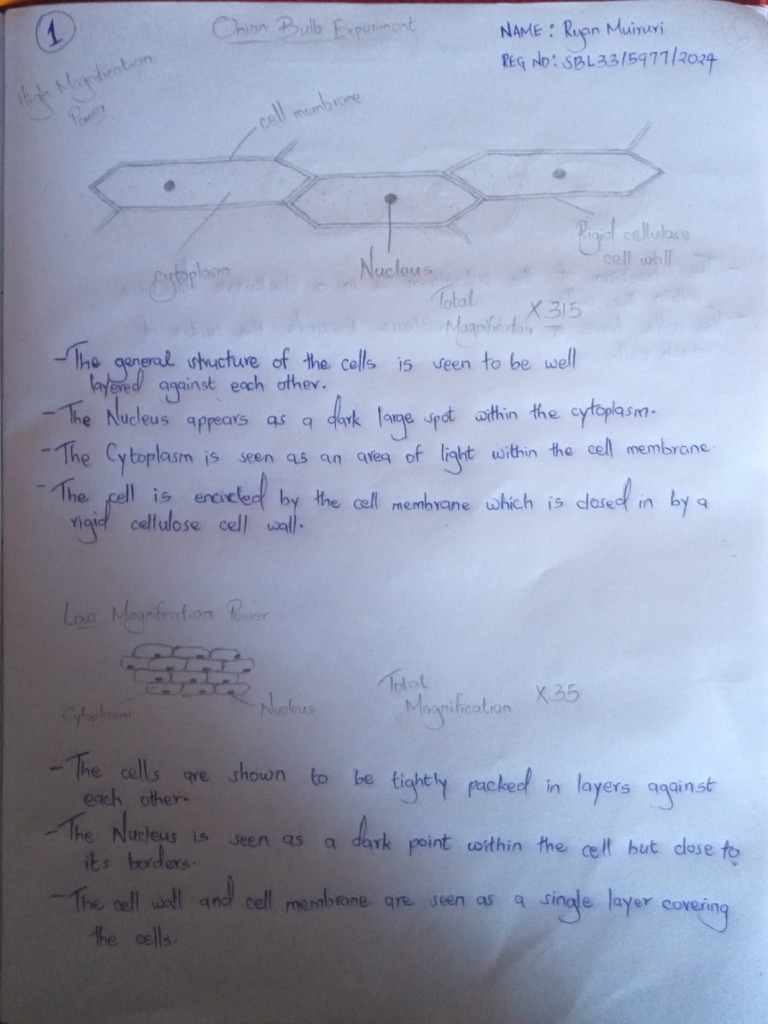 1
Onion Bulb Experiment
NAME: Ryan Muiruri
REG NO: SBL33/5977/2024
High Magnification
Power
cell membrane
cytoplasm
Nucleus
Rigid cellulose
cell wall
Total
Magnification
X 315
- The general structure of the cells is seen to be well
layered against each other.
- The Nucleus appears as a dark large spot within the cytoplasm.
- The Cytoplasm is seen as an area of light within the cell membrane.
- The cell is encircled by the cell membrane which is closed in by a
rigid cellulose cell wall.
Low Magnification Power
Cytoplasm
Nucleus
Total
Magnification
X 35
- The cells are shown to be tightly packed in layers against
each other.
- The Nucleus is seen as a dark point within the cell but close to
its borders.
- The cell wall and cell membrane are seen as a single layer covering
the cells.